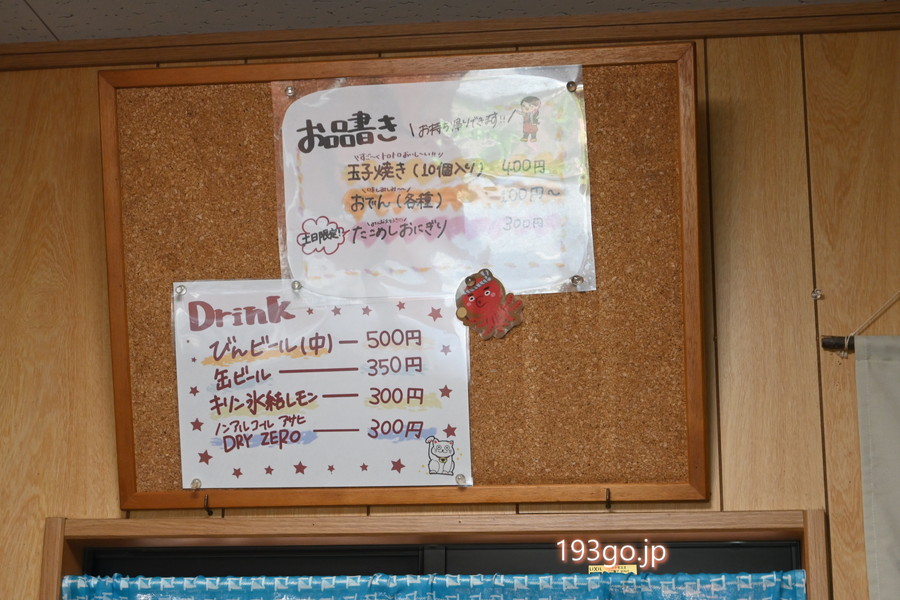 お品書き
\お持ち帰りできます!!/
玉子焼き(10個入り) 400円
おでん(各種) 100円~
土日限定!! たこめしおにぎり 300円
Drink
びんビール(中) ― 500円
缶ビール ― 350円
キリン氷結レモン ― 300円
ノンアルコール アサヒ
DRY ZERO ― 300円
193go.jp